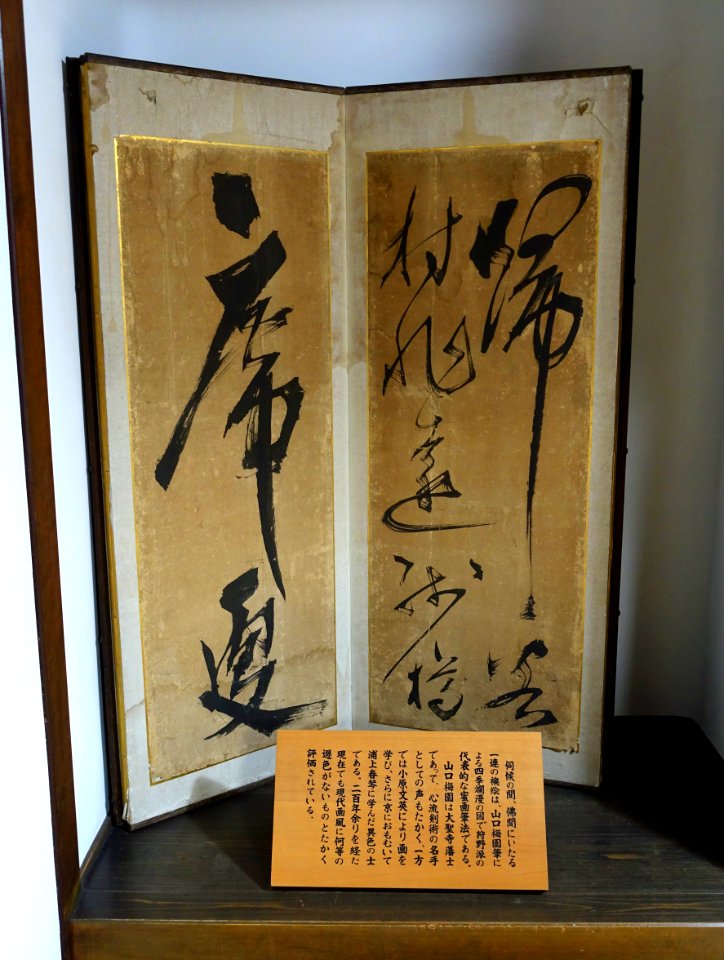 帰客
村非遠残樽
席更
伺候の間、佛間にいたる
一連の襖絵は、山口梅園筆に
よる四季爛漫の図で狩野派の
代表的な蜜画筆法である。
山口梅園は大聖寺藩士
であって、心流剣術の名手
としての声もたかく、一方
では小原文英により画を
学び、さらに京におもむいて
浦上春琴に学んだ異色の士
である。二百年余りを経た
現在でも現代画風に何等の
遜色がないものとたかく
評価されている。